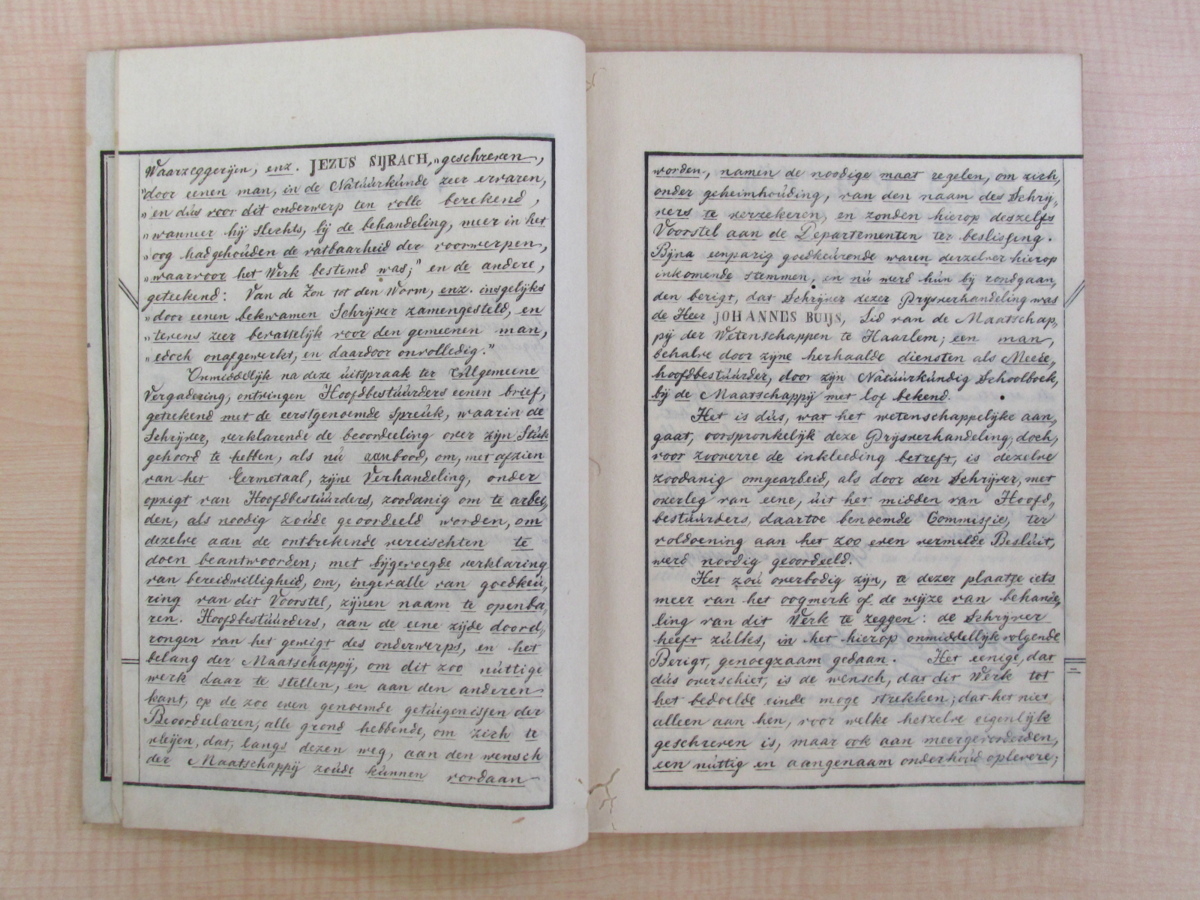 Waarzeggerijen, enz. JEZUS SIJRACH, „geschreven,
„door eenen man, in de Natúúrkúnde zeer ervaren,
„en dús voor dit onderwerp ten volle berekend,
„wanneer hij slechts, bij de behandeling, meer in het
„oog hadgehoúden de vatbaarheid der voorwerpen,
„waarvoor het Werk bestemd was;" en de andere,
geteekend: Van de Zon tot den Worm, enz. insgelijks
„door eenen bekwamen Schrijver zamengesteld, en
„tevens zeer bevattelijk voor den gemeenen man,
„edoch onafgewerkt, en daardoor onvolledig."
Onmiddelijk na deze úitspraak ter Algemeene
Vergadering, ontvingen Hoofdbestúúrders eenen brief,
geteekend met de eerstgenoemde Spreúk, waarin de
Schrijver, verklarende de beoordeeling over zijn Stúk
gehoord te hebben, als nú aanbood, om, met afzien
van het Eermetaal, zijne Verhandeling, onder
opzigt van Hoofdbestúúrders, zoodanig om te arbei,
den, als noodig zoúde geoordeeld worden, om
dezelve aan de ontbrekende vereischten te
doen beantwoorden; met bijgevoegde verklaring
van bereidwilligheid, om, ingevalle van goedkeú,
ring van dit Voorstel, zijnen naam te openba,
ren. Hoofdbestúúrders, aan de eene zijde doord,
rongen van het gewigt des onderwerps, en het
belang der Maatschappij, om dit zoo núttige
werk daar te stellen, en aan den anderen
kant, op de zoo even genoemde getúigenissen der
Beoordeelaren, alle grond hebbende, om zich te
vleijen, dat, langs dezen weg, aan den wensch
der Maatschappij zoúde kúnnen voldaan
worden, namen de noodige maat regelen, om zich,
onder geheimhoúding, van den naam des Schrij,
vers te verzekeren, en zonden hierop deszelfs
Voorstel aan de Departementen ter beslissing.
Bijna eenparig goedkeúrende waren derzelver hierop
inkomende stemmen, en nú werd hún bij rondgaan,
den berigt, dat Schrijver dezer Prijsverhandeling was
de Heer JOHANNES BUIJS, Lid van de Maatschap,
pij der Wetenschappen te Haarlem; een man,
behalve door zijne herhaalde diensten als Mede,
hoofdbestúúrder, door zijn Natúúrkúndig Schoolboek,
bij de Maatschappij met lof bekend.
Het is dús, wat het wetenschappelijke aan,
gaat, oorspronkelijk deze Prijsverhandeling, doch,
voor zooverre de inkleeding betreft, is dezelve
zoodanig omgearbeid, als door den Schrijver, met
overleg van eene, úit het midden van Hoofd„
bestúúrders, daartoe benoemde Commissie, ter
voldoening aan het zoo even vermelde Beslúit,
werd noodig geoordeeld.
Het zoú overbodig zijn, te dezer plaatse iets
meer van het oogmerk of de wijze van behande,
ling van dit Werk te zeggen: de Schrijver
heeft zúlks, in het hierop onmiddellijk volgende
Berigt, genoegzaam gedaan. Het eenige, dat
dús overschiet, is de wensch, dat dit Werk tot
het bedoelde einde moge strekken; dat het niet
alleen aan hen, voor welke hetzelve eigenlijk
geschreven is, maar ook aan meergevorderden,
een núttig en aangenaam onderhoúd oplevere;